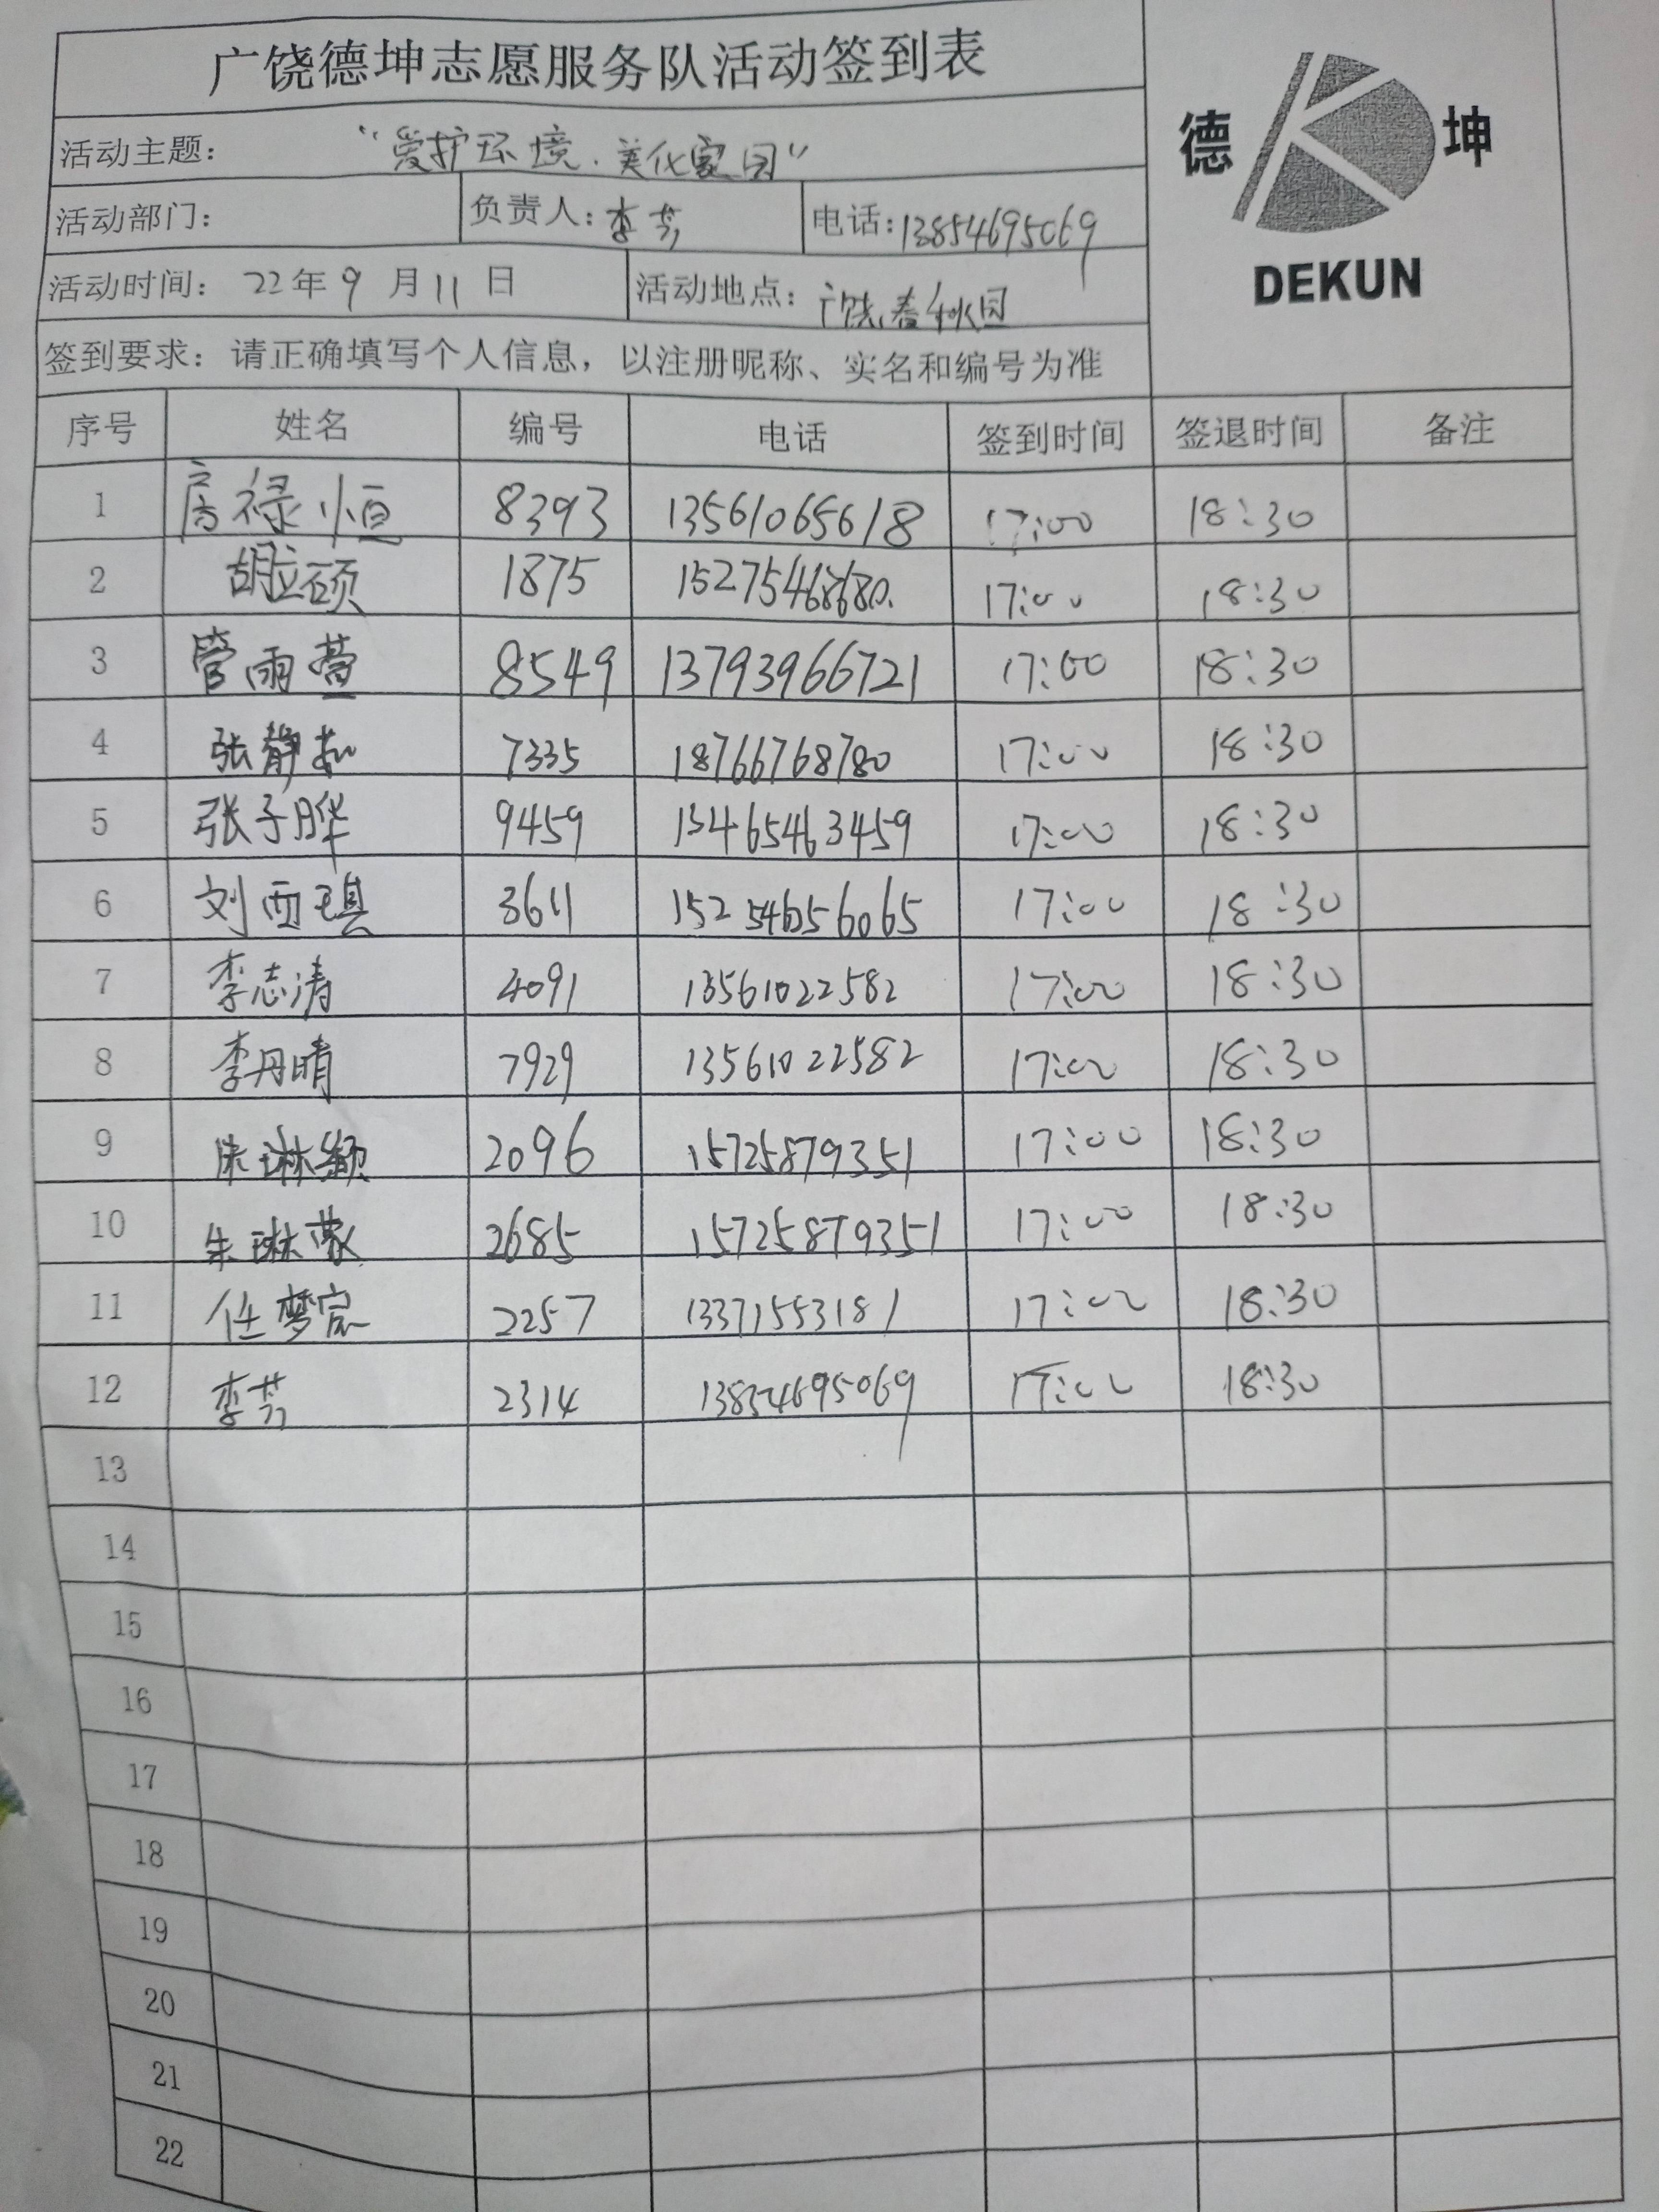 广饶德坤志愿服务队活动签到表
德 坤
DEKUN
活动主题： “爱护环境．美化家园”
活动部门： 负责人：李芳 电话：13854695069
活动时间： 22年9月11日 活动地点：广饶春秋园
签到要求：请正确填写个人信息，以注册昵称、实名和编号为准
序号 姓名 编号 电话 签到时间 签退时间 备注
1 房禄恒 8393 13561065618 17:00 18:30
2 胡立硕 1875 15275468680. 17:00 18:30
3 管雨萱 8549 13793966721 17:00 18:30
4 张静 7335 18766768780 17:00 18:30
5 张子晔 9459 13465463459 17:00 18:30
6 刘西琪 3611 17:00 18:30
7 李志涛 4091 13561022582 17:00 18:30
8 李丹晴 7929 13561022582 17:00 18:30
9 朱琳颖 2096 15725879351 17:00 18:30
10 朱琳 2685 15725879351 17:00 18:30
11 任梦宸 2257 13371553181 17:00 18:30
12 李芳 2314 13854695069 17:00 18:30
13
14
15
16
17
18
19
20
21
22